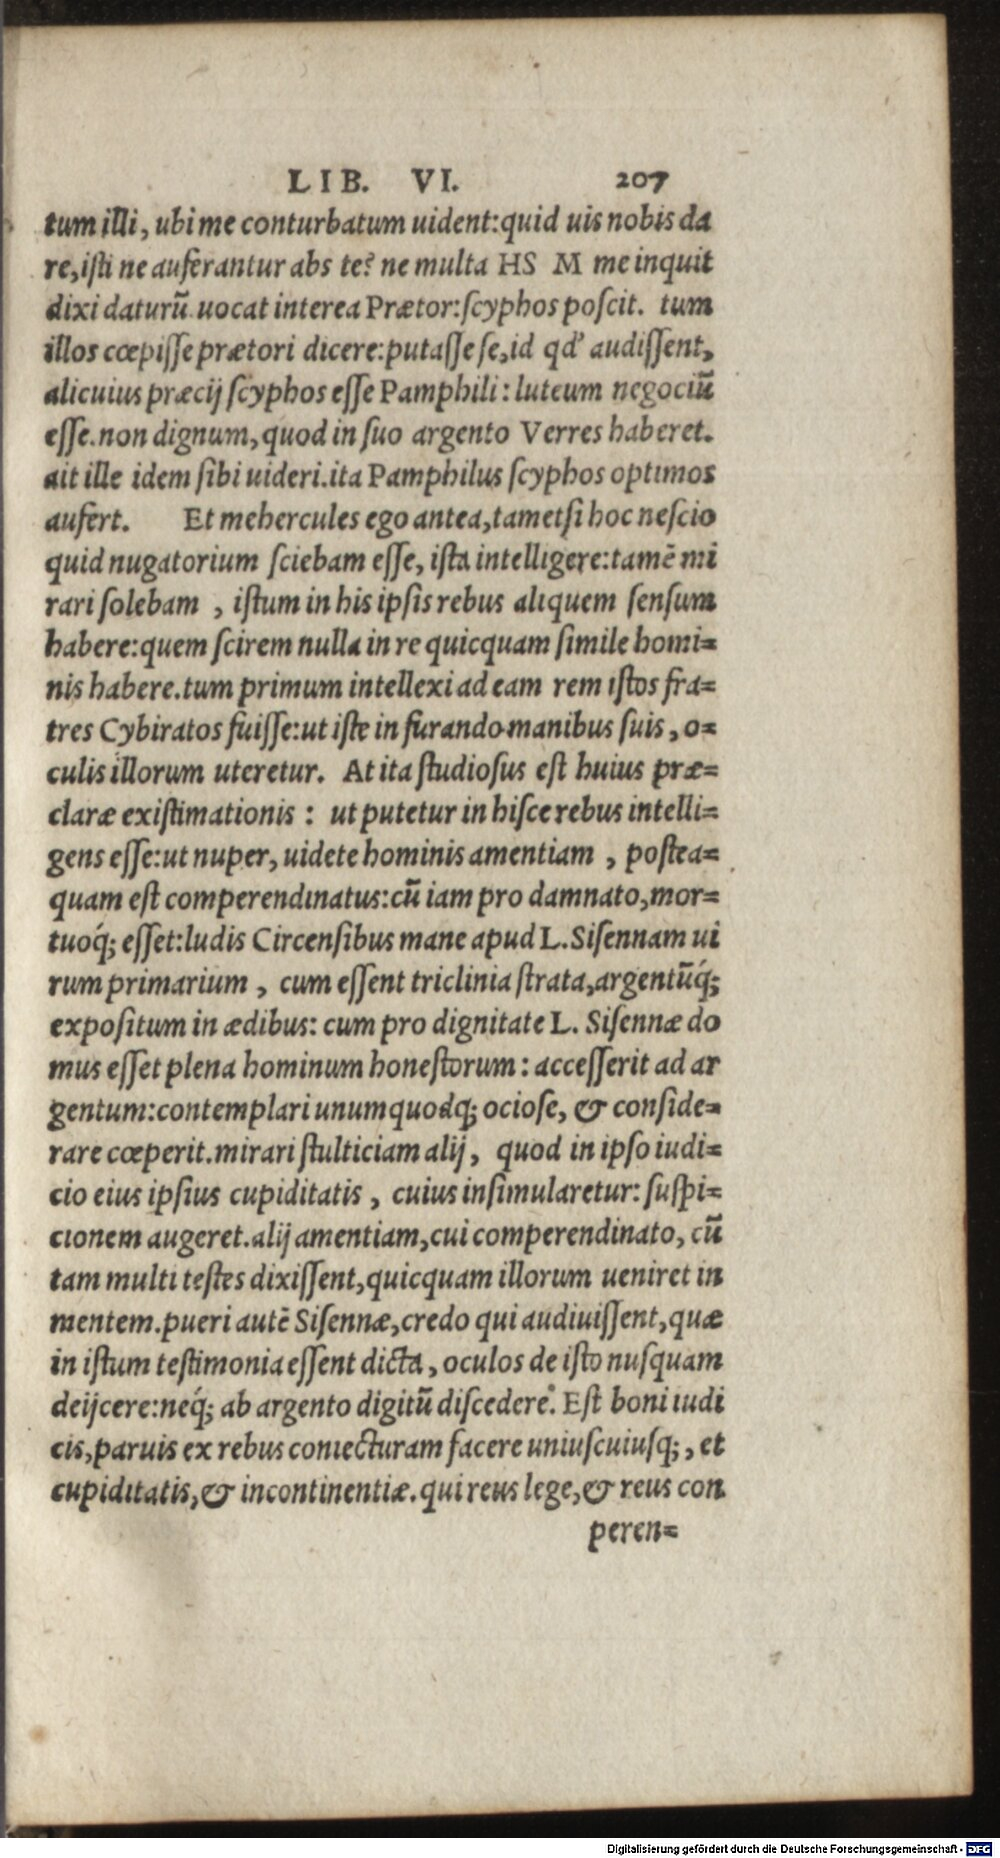 LIB. VI. 207
tum illi, ubi me conturbatum uident:quid uis nobis da
re,isti ne auferantur abs te? ne multa HS M me inquit
dixi daturū uocat interea Prætor:scyphos poscit. tum
illos cœpisse prætori dicere:putasse se,id qd' audissent,
alicuius præcij scyphos esse Pamphili: luteum negociū
esse.non dignum,quod in suo argento Verres haberet.
ait ille idem sibi uideri.ita Pamphilus scyphos optimos
aufert. Et mehercules ego antea,tametsi hoc nescio
quid nugatorium sciebam esse, ista intelligere:tamē mi
rari solebam , istum in his ipsis rebus aliquem sensum
habere:quem scirem nulla in re quicquam simile homi=
nis habere.tum primum intellexi ad eam rem istos fra=
tres Cybiratos fuisse:ut iste in furando manibus suis, o=
culis illorum uteretur. At ita studiosus est huius præ=
claræ existimationis : ut putetur in hisce rebus intelli=
gens esse:ut nuper, uidete hominis amentiam , postea=
quam est comperendinatus:cū iam pro damnato,mor=
tuoq́; esset:ludis Circensibus mane apud L.Sisennam ui
rum primarium , cum essent triclinia strata,argentūq́;
expositum in ædibus: cum pro dignitate L. Sisennæ do
mus esset plena hominum honestorum: accesserit ad ar
gentum:contemplari unumquodq; ociose, & conside=
rare cœperit.mirari stulticiam alij, quod in ipso iudi=
cio eius ipsius cupiditatis , cuius insimularetur: suspi=
cionem augeret.alij amentiam,cui comperendinato, cū
tam multi testes dixissent,quicquam illorum ueniret in
mentem.pueri autē Sisennæ,credo qui audiuissent,quæ
in istum testimonia essent dicta, oculos de isto nusquam
deijcere:neq́; ab argento digitū discedere. Est boni iudi
cis,paruis ex rebus coniecturam facere uniuscuiusq;, et
cupiditatis,& incontinentiæ.qui reus lege,& reus con
peren=
Digitalisierung gefördert durch die Deutsche Forschungsgemeinschaft - DFG